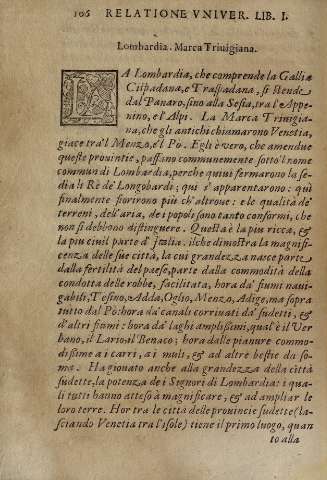 106 RELATIONE VNIVER. LIB. I.
Lombardia. Marca Triuigiana.
LA Lombardia, che comprende la Gallia
Cispadana, e Traspadana, si stende
dal Panaro, sino alla Sesia, tra l'Appe-
nino, e l'Alpi. La Marca Triuigia-
na, che gli antichi chiamarono Venetia,
giace tra'l Menzo, e'l Pò. Egli è vero, che amendue
queste prouintie, passano communemente sotto'l nome
commun di Lombardia, perche quiui fermarono la se-
dia li Rè de' Longobardi; qui s'apparentarono: quì
finalmente fiorirono più ch'altroue: e le qualità de'
terreni, dell'aria, de i popoli sono tanto conformi, che
non si debbono distinguere. Questa è la piu ricca, &
la piu ciuil parte d'Italia. ilche dimostra la magnifi-
cenza delle sue città, la cui grandezza nasce parte
dalla fertilità del paese, parte dalla commodità della
condotta delle robbe, facilitata, hora da' fiumi naui-
gabili, Tesino, Adda, Oglio, Menzo, Adige, ma sopra
tutto dal Pò: hora da' canali corriuati da' sudetti, &
d'altri fiumi: hora da' laghi amplissimi, qual'è il Ver
bano, il Lario, il Benaco; hora dalle pianure commo-
dissime a i carri, a i muli, & ad altre bestie da so-
ma. Ha giouato anche alla grandezza della città
sudette, la potenza de i Signori di Lombardia: i qua-
li tutti hanno atteso a magnificare, & ad ampliar le
loro terre. Hor tra le città delle prouincie sudette (la-
sciando Venetia tra l'isole) tiene il primo luogo, quan
to alla